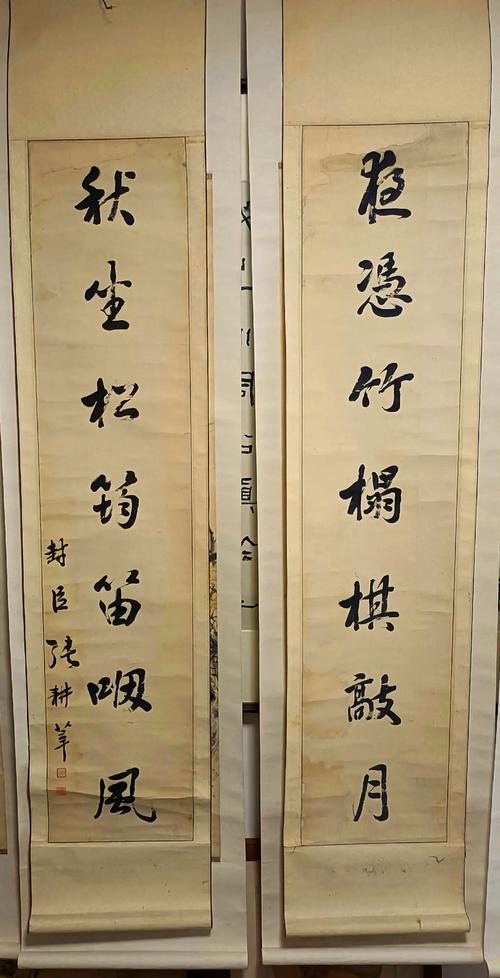 夜憑竹榻棋敲月
秋坐松筠笛咽風
封臣張耕莘